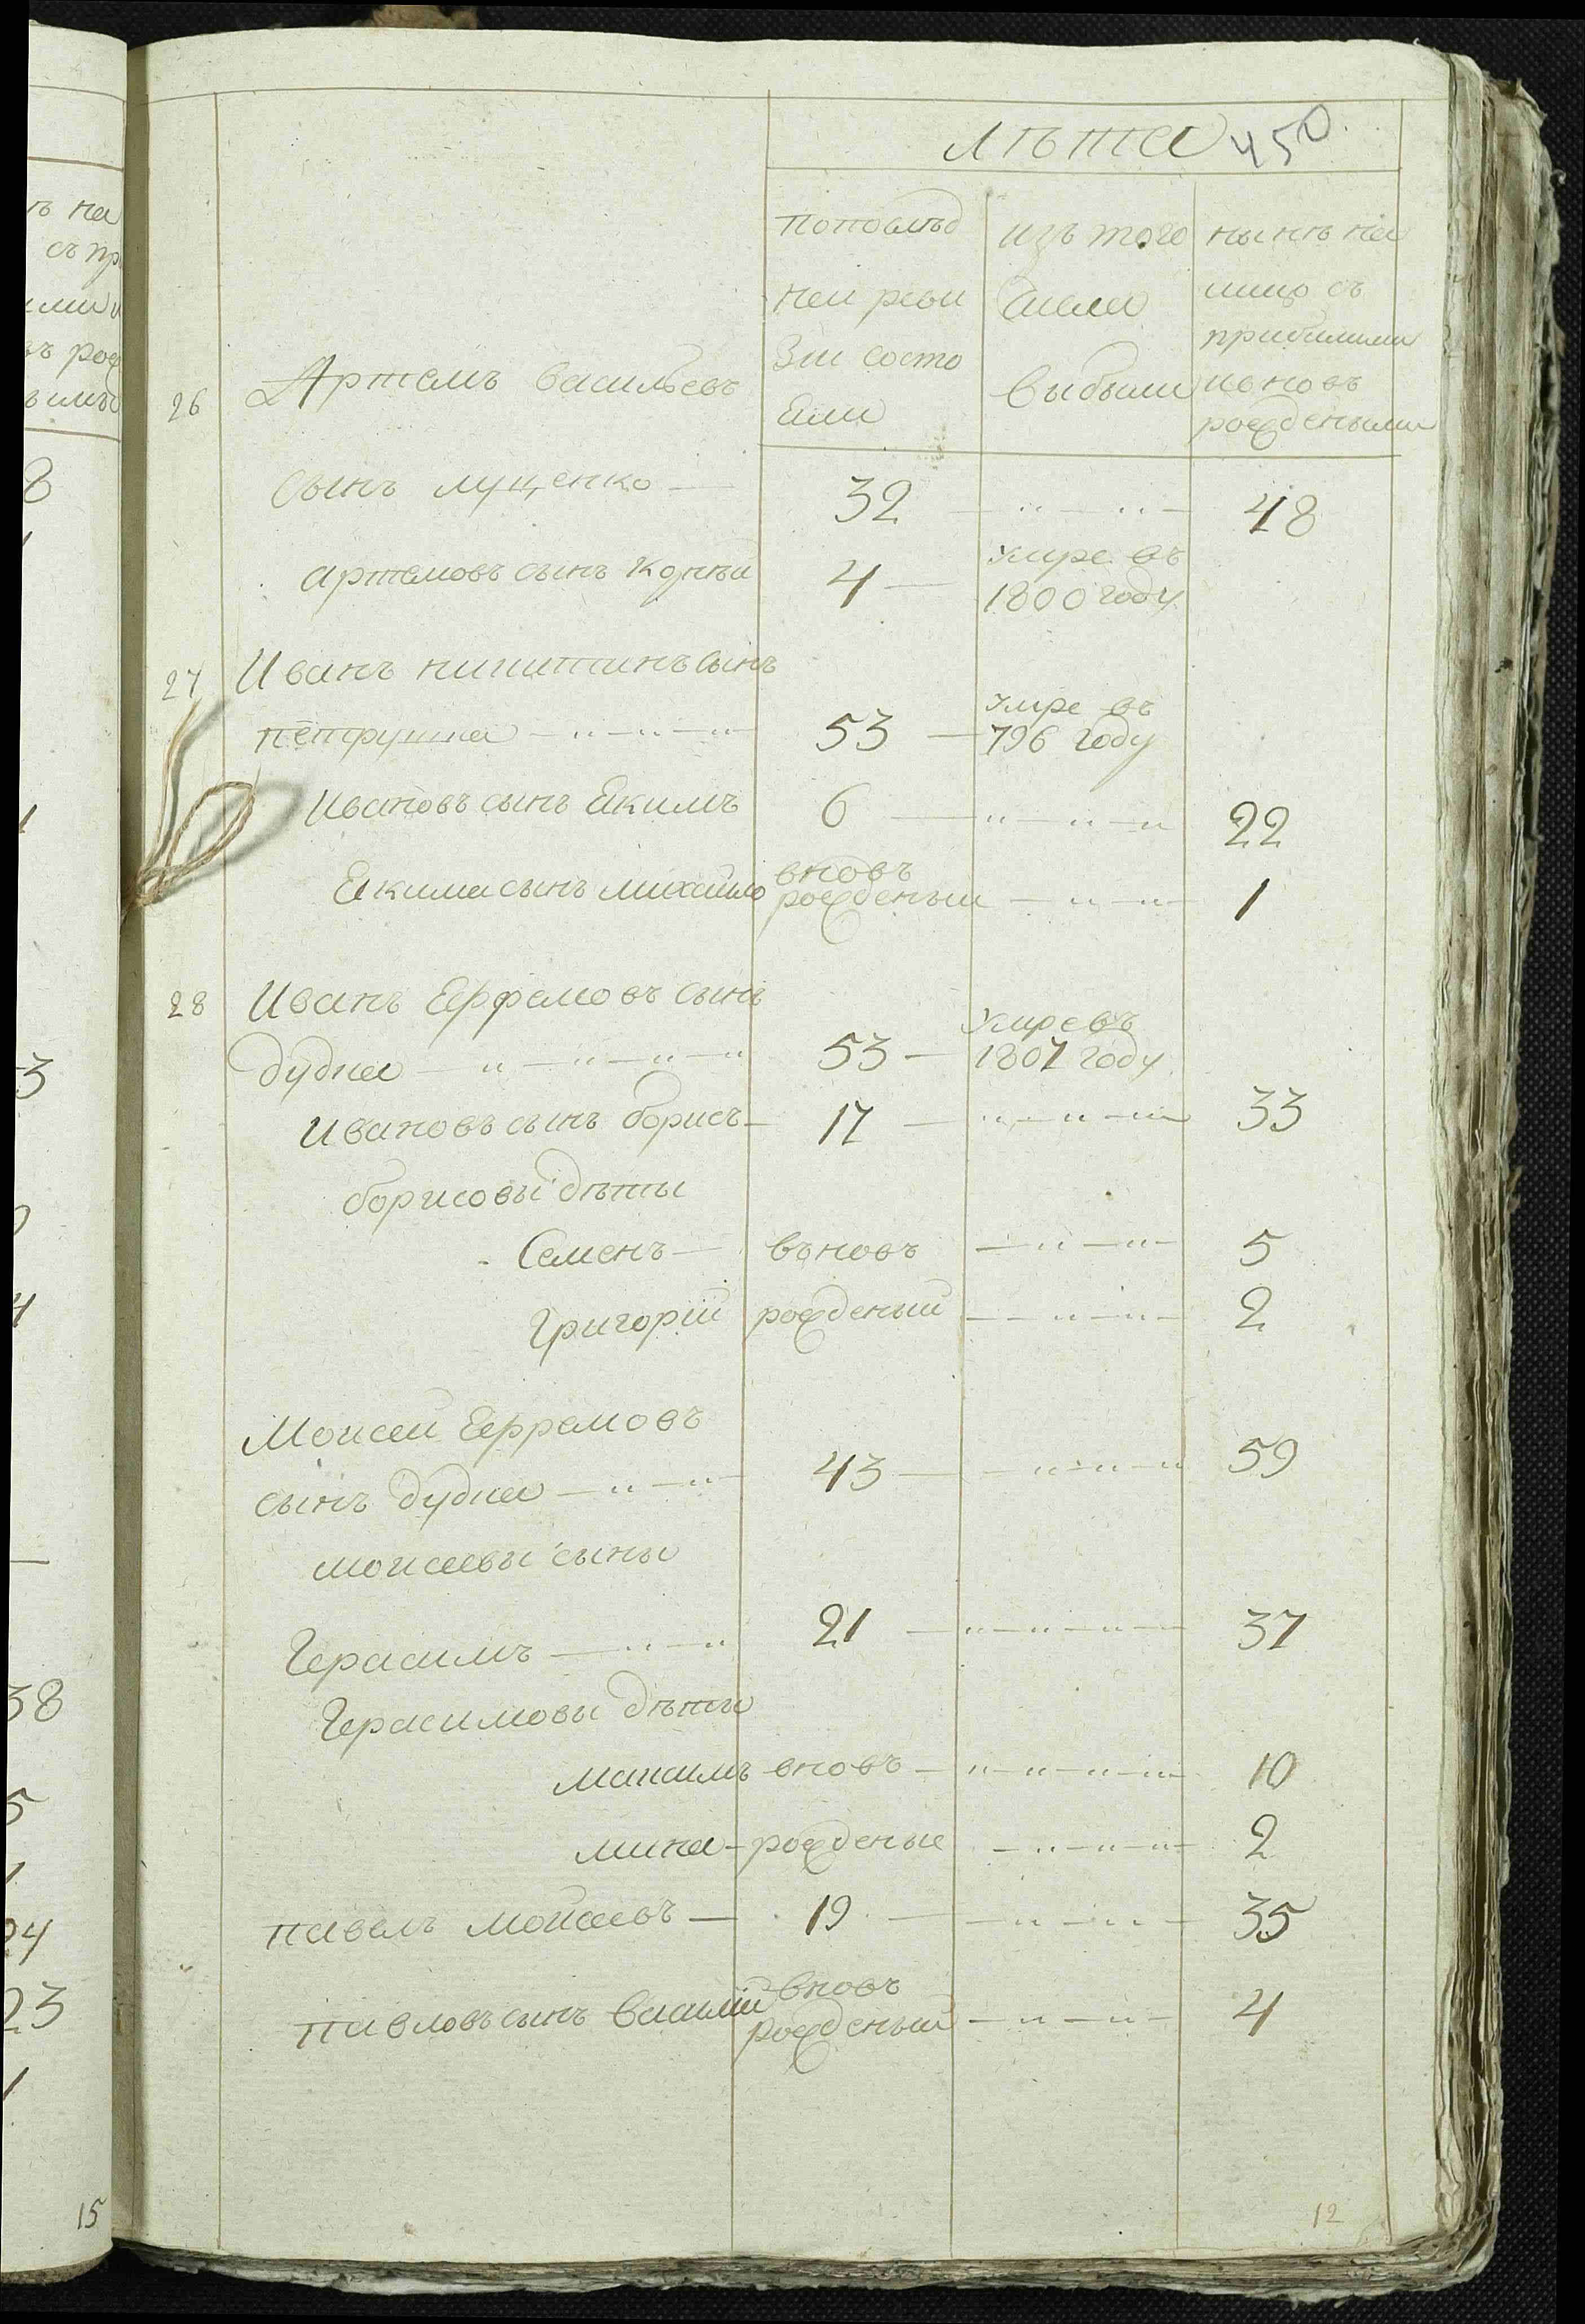 лѣта 450
попослѣд
ней реви
зіи состо
яли
изъ того
числа
выбыли
нынѣ на
лицо съ
прибылыми
ивновъ
рождеными
26 Артемъ васильевъ
сынъ луценко — 32 — „ — „ — 48
артемовъ сынъ Корнѣй 4 — умре въ
1800 году
27 Иванъ никитинъ сынъ
петрушка — „ — „ — „ — 53 — умре въ
796 году
Ивановъ сынъ Екимъ 6 — „ — „ — „ 22
Екима сынъ михайло вновъ
рожденый — „ — „ — 1
28 Иванъ Ефремовъ сынъ
дудка „ — „ — „ — „ 53 — умре въ
1807 году
Ивановъ сынъ борисъ — 17 — „ — „ — „ 33
борисовы дѣты
Семенъ — въновъ — „ — „ — 5
Григорій рожденый — „ — „ — 2
Моисей Ефремовъ
сынъ дудка — „ — „ — 43 — „ — „ — „ 59
моисеевы сыны
Герасимъ — „ — „ 21 — „ — „ — „ — 37
Герасимовы дѣты
максимъ вновъ — „ — „ — „ — „ — 10
мина — рожденые — „ — „ — „ — 2
павелъ моисеевъ — 19 — — „ — „ — 35
павловъ сынъ василій вновъ
рожденый — „ — „ — 4
12
ѣ на
съ пр
ыми и
въ рож
8
1
1
3
4
38
5
1
24
23
1
15